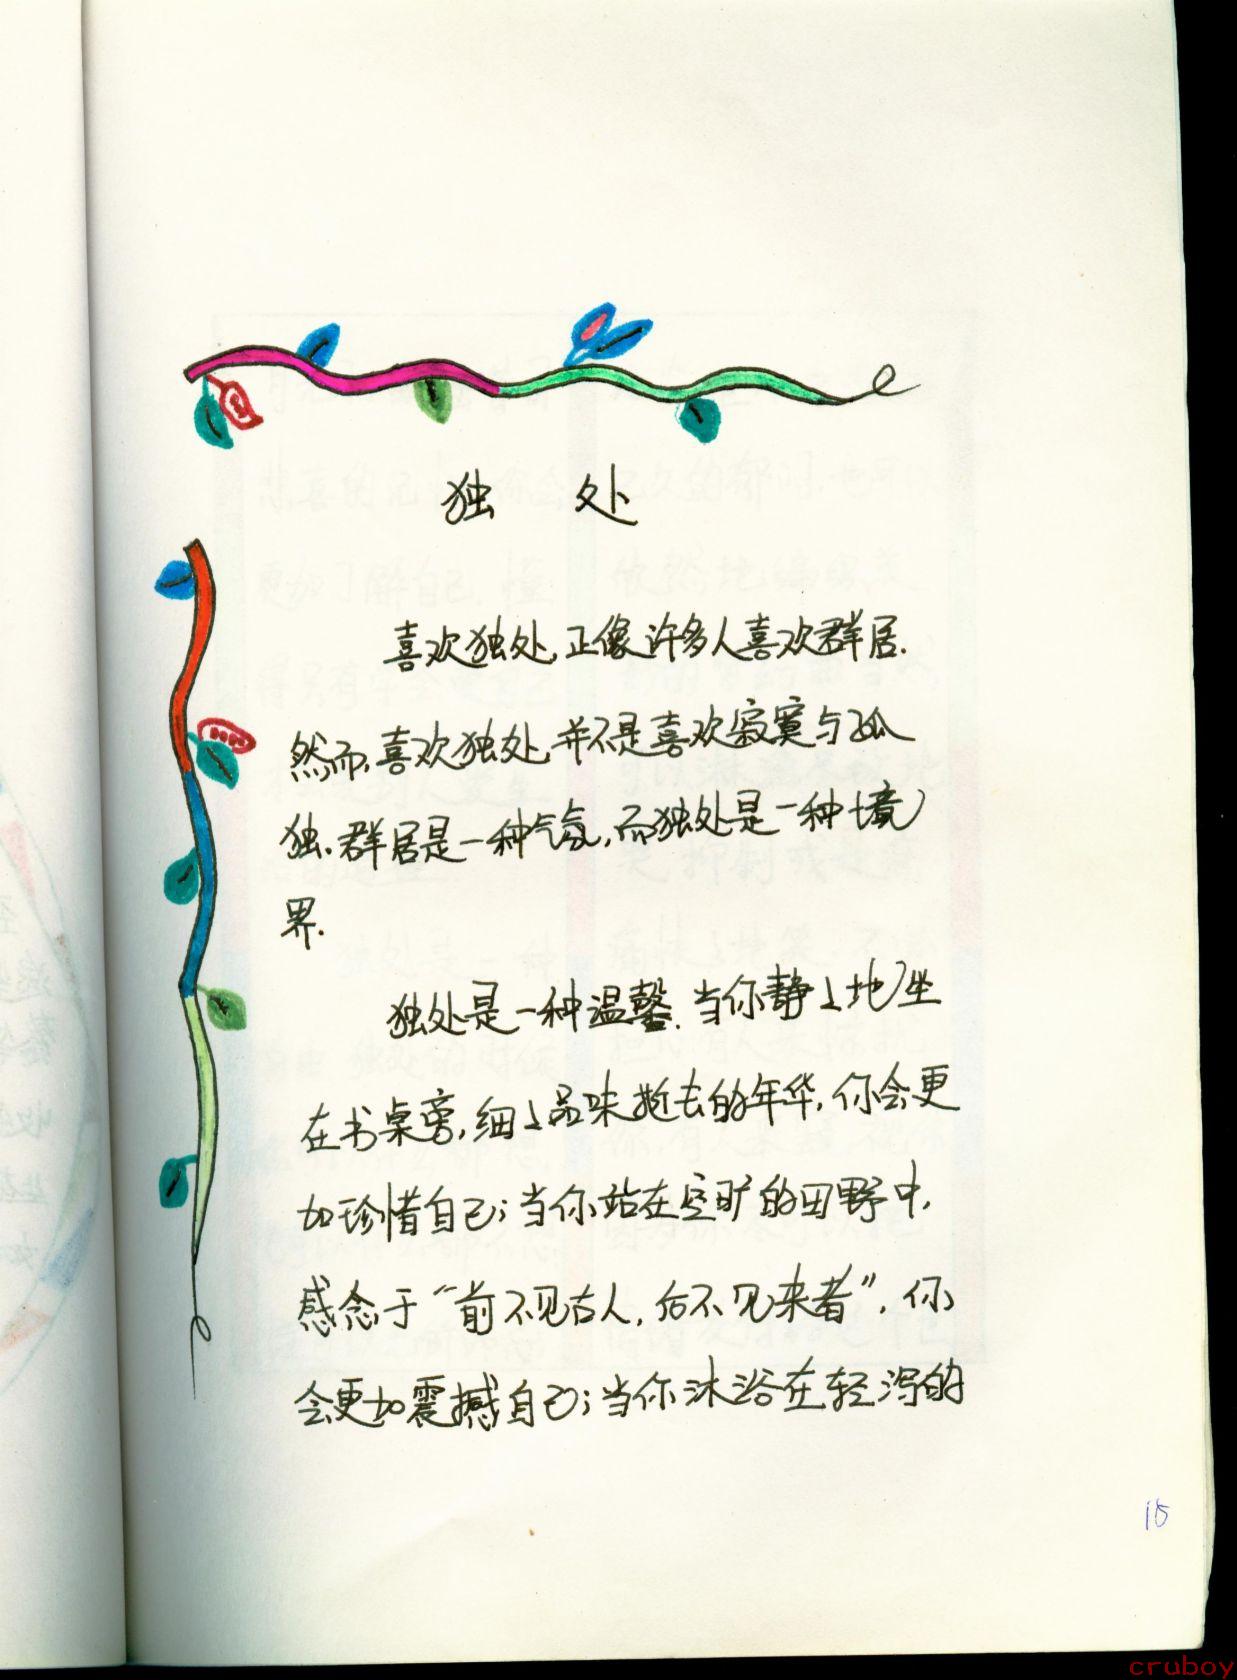 独 处
喜欢独处,正像许多人喜欢群居.
然而,喜欢独处,并不是喜欢寂寞与孤
独.群居是一种气氛,而独处是一种境
界.
独处是一种温馨.当你静々地坐
在书桌旁,细々品味逝去的年华,你会更
加珍惜自己;当你站在空旷的田野中,
感念于“前不见古人,后不见来者”,你
会更加震撼自己;当你沐浴在轻泻的
15
cruboy